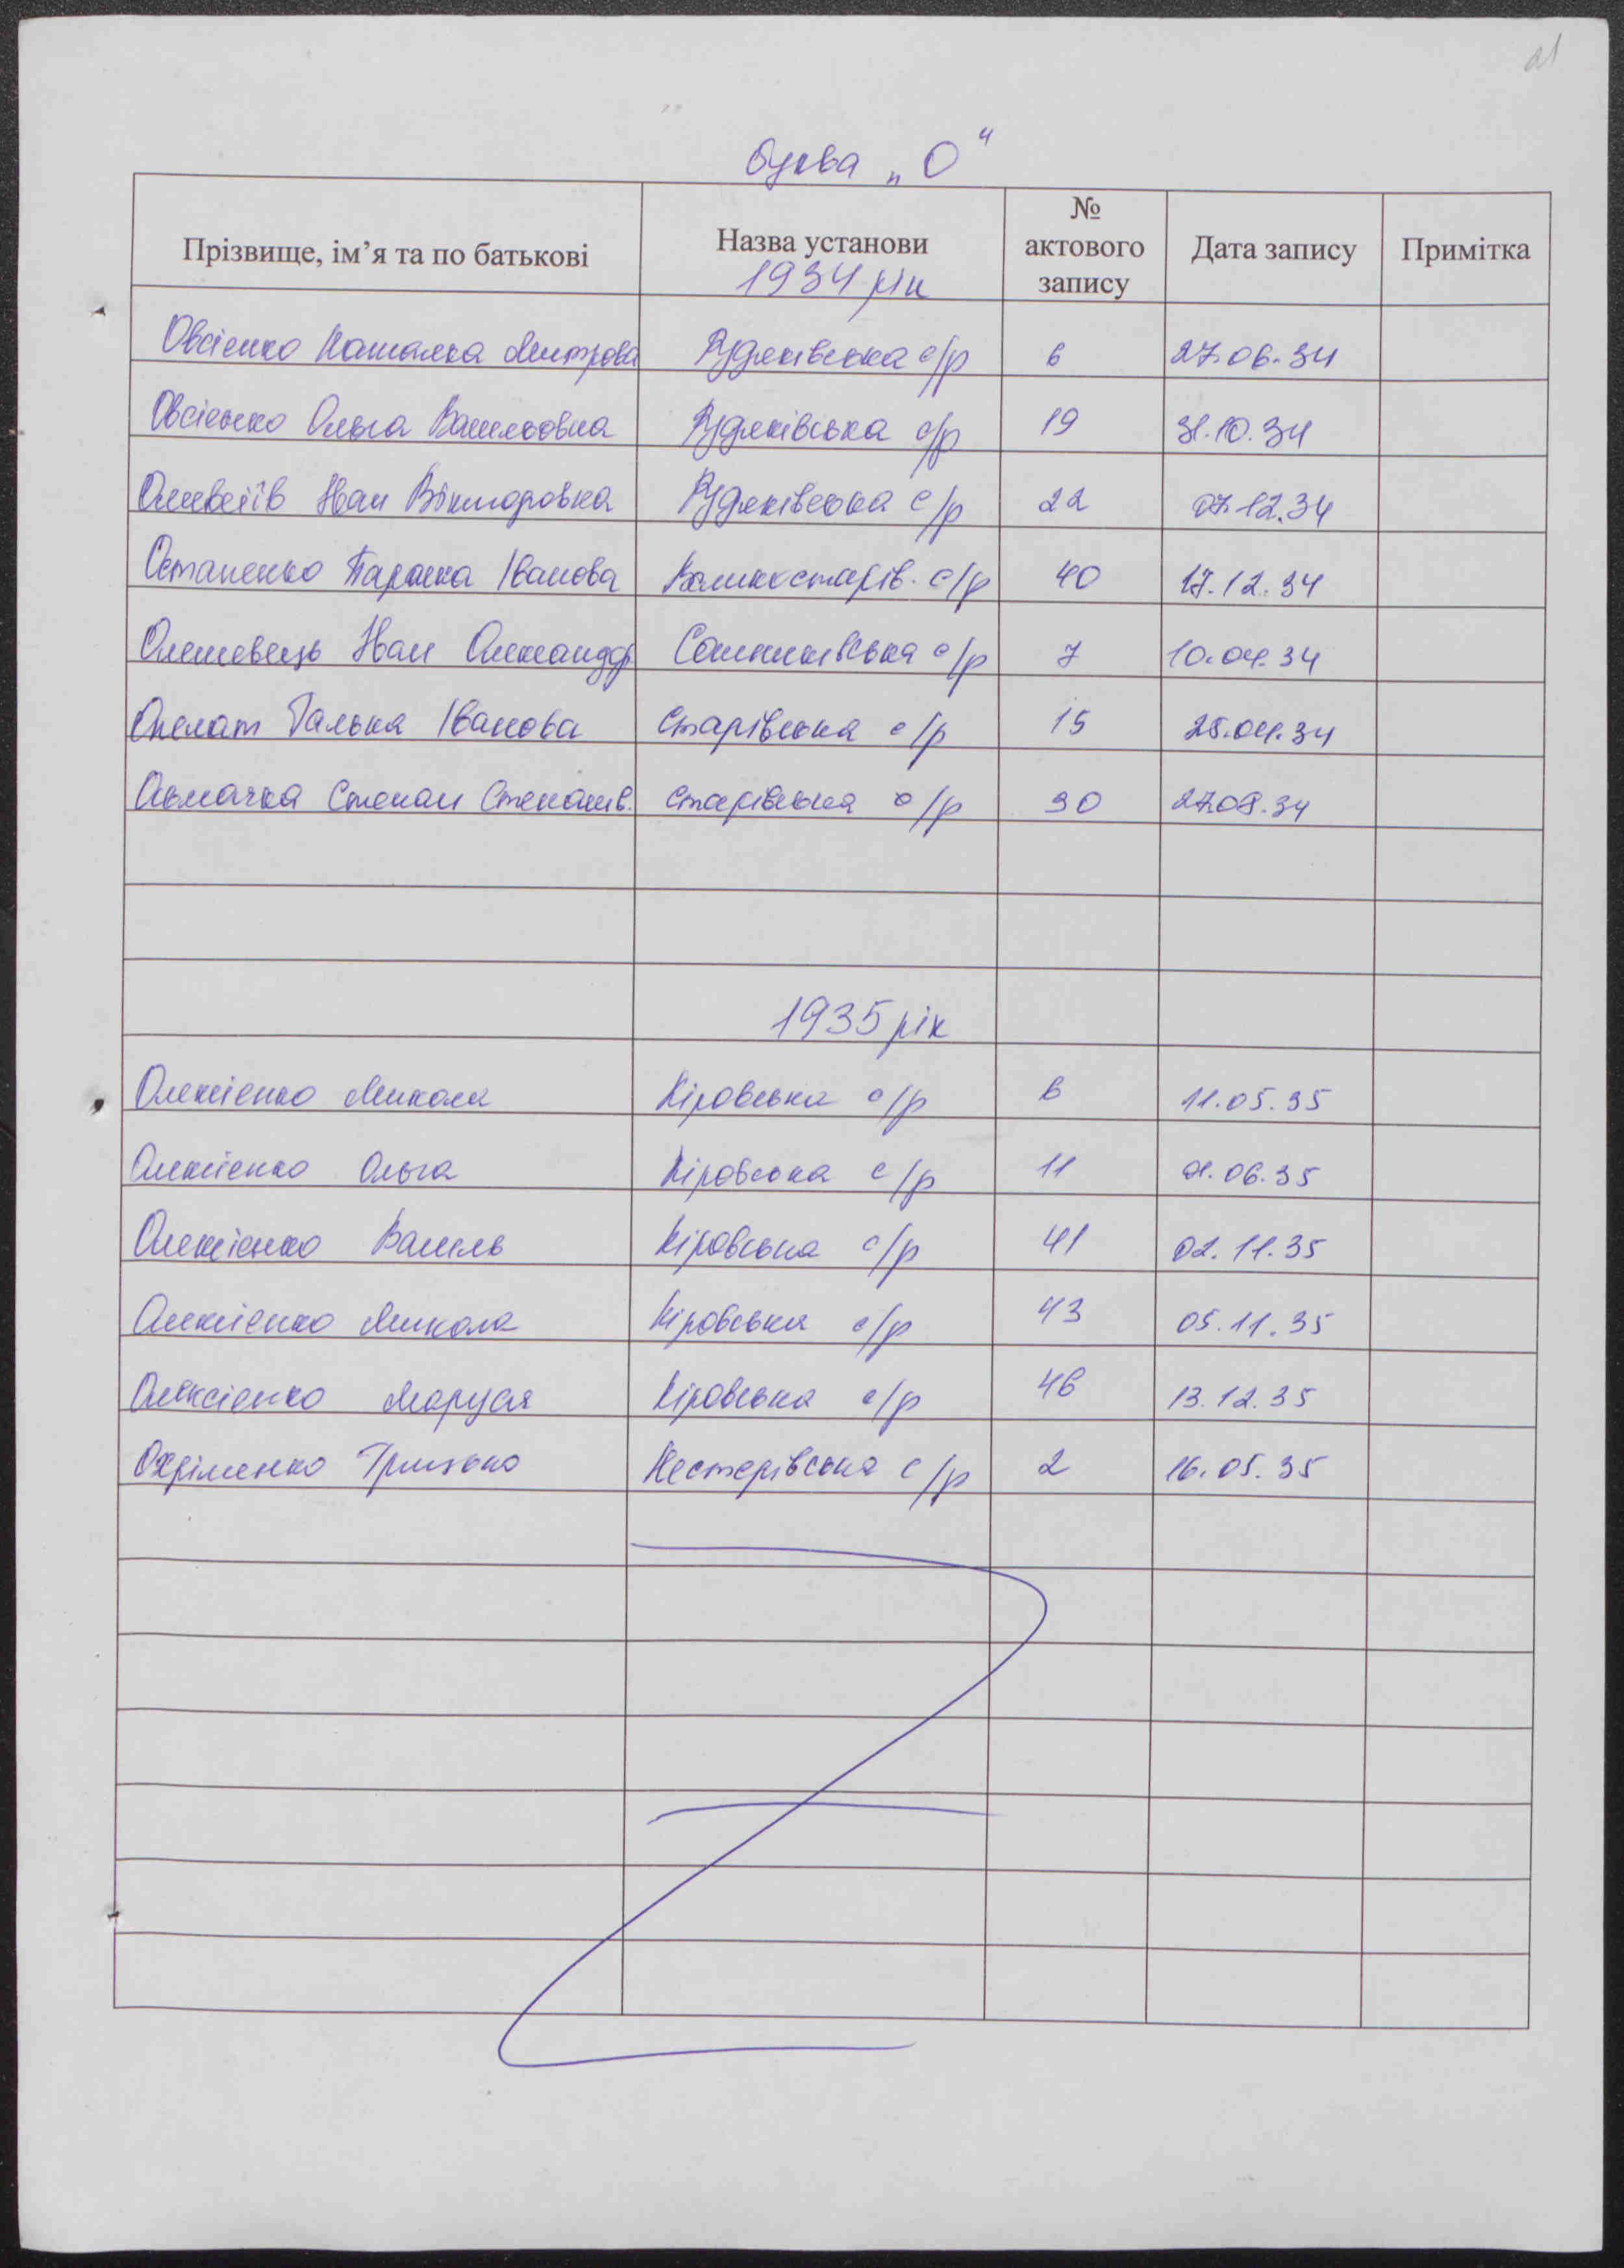 21
буква „О"
Прізвище, ім'я та по батькові Назва установи № актового запису Дата запису Примітка
1934 рік
Овсієнко Наталка Митрова Рудяківська с/р 6 27.06.34
Овсієнко Ольга Васильовна Рудяківська с/р 19 31.10.34
Іван Вікторовка Рудяківська с/р 22 07.12.34
Остапенко Параска Іванова Великостарів. с/р 40 17.12.34
Іван Олександр Сошниківська с/р 7 10.04.34
Опелат Галька Іванова Старівська с/р 15 25.04.34
Осьмачка Степан Степанів. Старівська с/р 30 27.09.34
1935 рік
Олексієнко Микола Кіровська с/р 6 11.05.35
Олексієнко Ольга Кіровська с/р 11 01.06.35
Олексієнко Василь Кіровська с/р 41 02.11.35
Олексієнко Микола Кіровська с/р 43 05.11.35
Олексієнко Маруся Кіровська с/р 46 13.12.35
Охріменко Грицько Нестерівська с/р 2 16.05.35